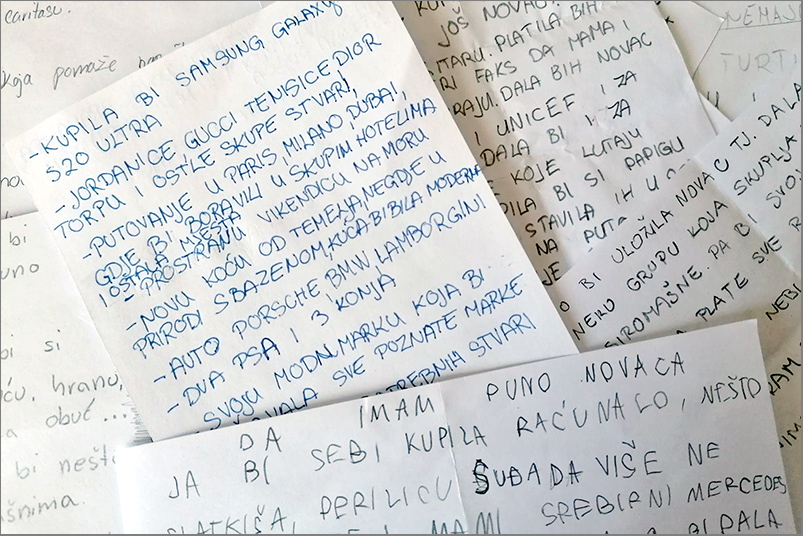 caritasu.
koja pomaže
bi
uno
bi si
ću, hranu,
a obuć...
bi nešt
šnima.
- KUPILA BI SAMSUNG GALAXY
S20 ULTRA
- JORDANICE GUCCI TENISICE DIOR
TORPU I OSTLE SKUPE STVARI,
- PUTOVANJE U PARIS, MILANO, DUBAI,
GDJE BI BORAVILI U SKUPIM HOTELIMA
I OSTALA MJESTA
- PROSTRANU VIKENDICU NA MORU
- NOVU KOĆU OD TEMELJA, NEGDJE U
PRIRODI S BAZENOM, KUĆA BI BILA MODERNA
- AUTO PORSCHE BMW LAMBORGINI
- DVA PSA I 3 KONJA
SVOJU MODNU MARKU KOJA BI
SVE POZNATE MARKE
STVARI
JOŠ NOVAC
TARU. PLATILA BIH
RI FAKS DA MAMA I
RAJU. DALA BIH NOVAC
I UNICEF I ZA
DALA BI I ZA
E KOJE LUTAJU
PILA BI SI PAPIGU
STAVILA IH U
NA PUT
JE
NEMAJ
TURTI
TJ. DALA
O BI ULOŽILA NOVAC U
NEKU GRUPU KOJA SKUPLJA
SIROMAŠNE. PA BI SVOJ
PLATE SVE R
NEBI
RAM
DA IMAM PUNO NOVACA
JA BI SEBI KUPILA RAČUNALO, NEŠTO
SLATKIŠA, PERILICU SUĐA DA VIŠE NE
MAMI SREBRNI MERCEDES
BI DALA